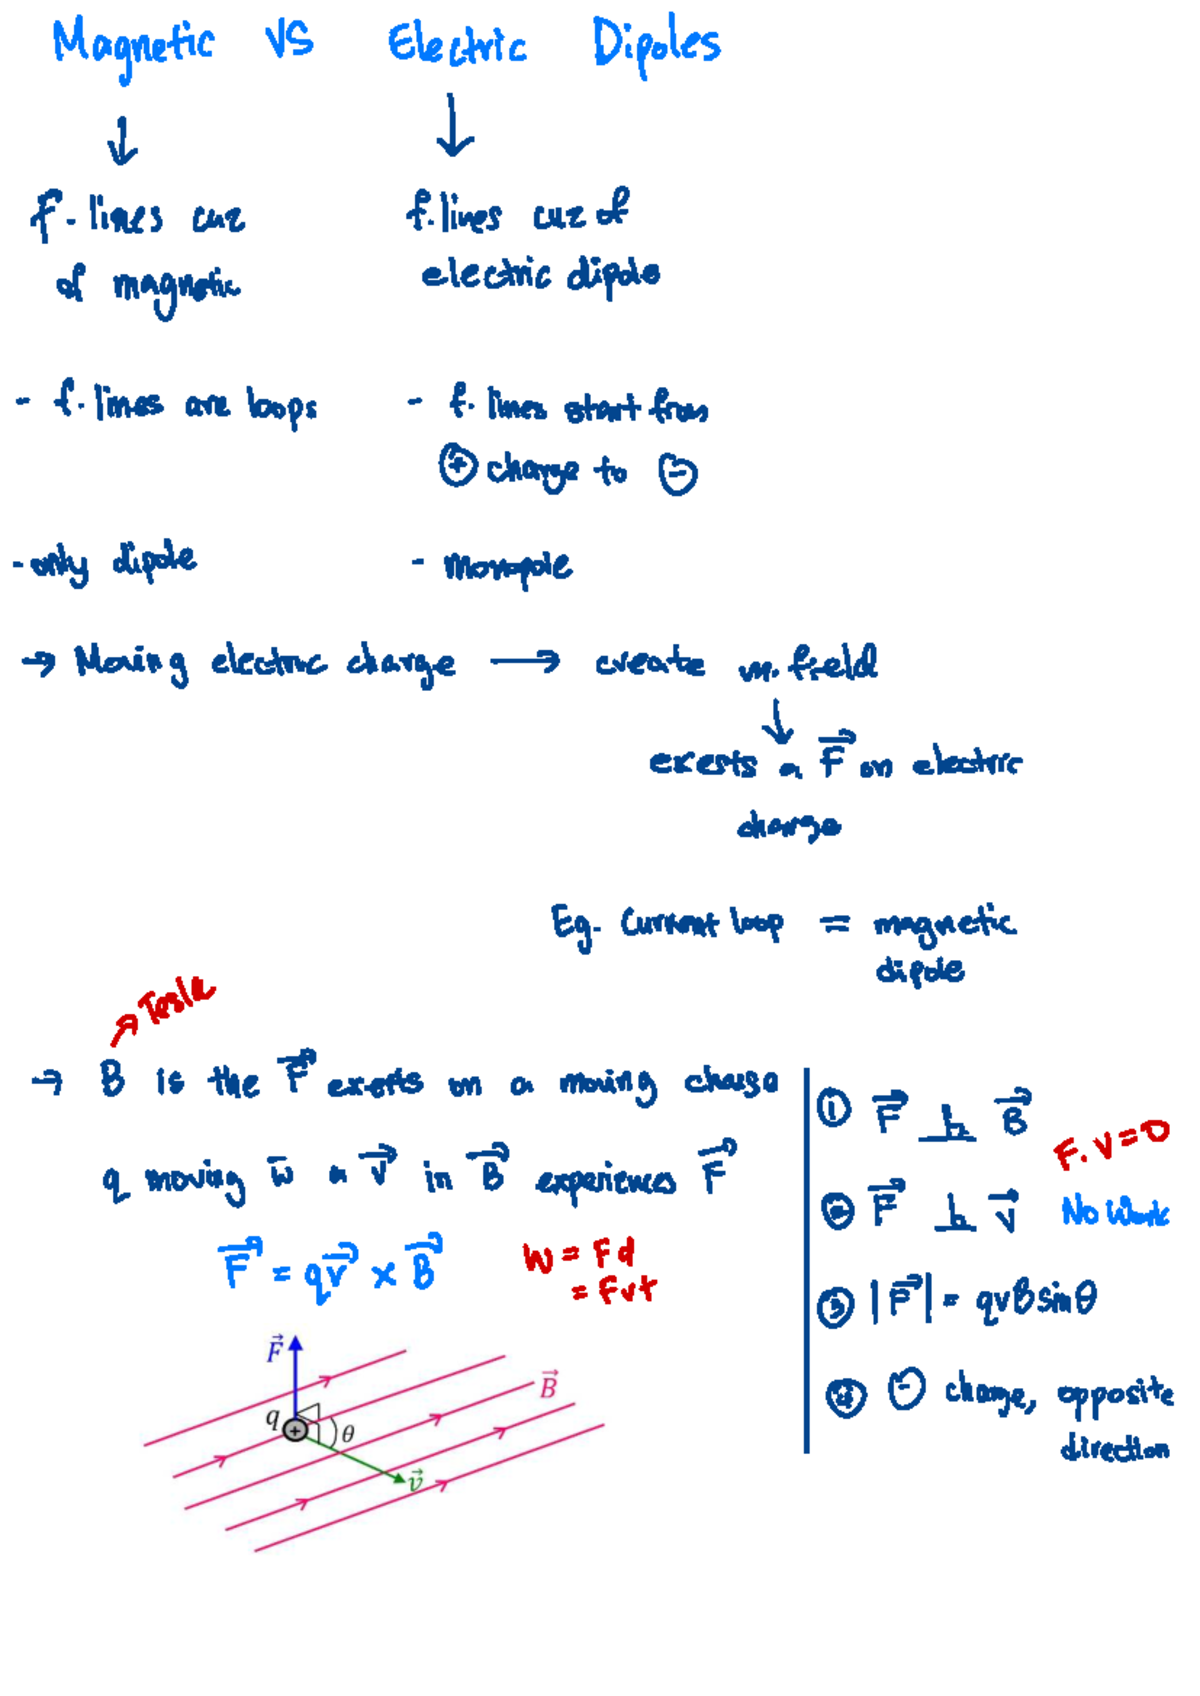 Magnetic VS Electric Dipoles
↓ ↓
F-lines cuz
of magnetic
f.lines cuz of
electric dipole
- f.lines are loops
- f. lines start from
⊕ charge to ⊖
- only dipole
- monopole
→ Moving electric charge → create m. field
↓
exests a F⃗ on electric
charge
Eg. Current loop = magnetic
dipole
↗ Tesla
→ B is the F⃗ exerts on a moving charge
q moving w̄ a v⃗ in B⃗ experiences F⃗
F⃗ = qv⃗ × B⃗
W = Fd
= Fvt
① F⃗ ⊥ B⃗
F. V = 0
② F⃗ ⊥ v⃗ No Work
③ |F⃗| = qvBsinθ
④ ⊖ charge, opposite
direction
F⃗
B⃗
q + θ
v⃗